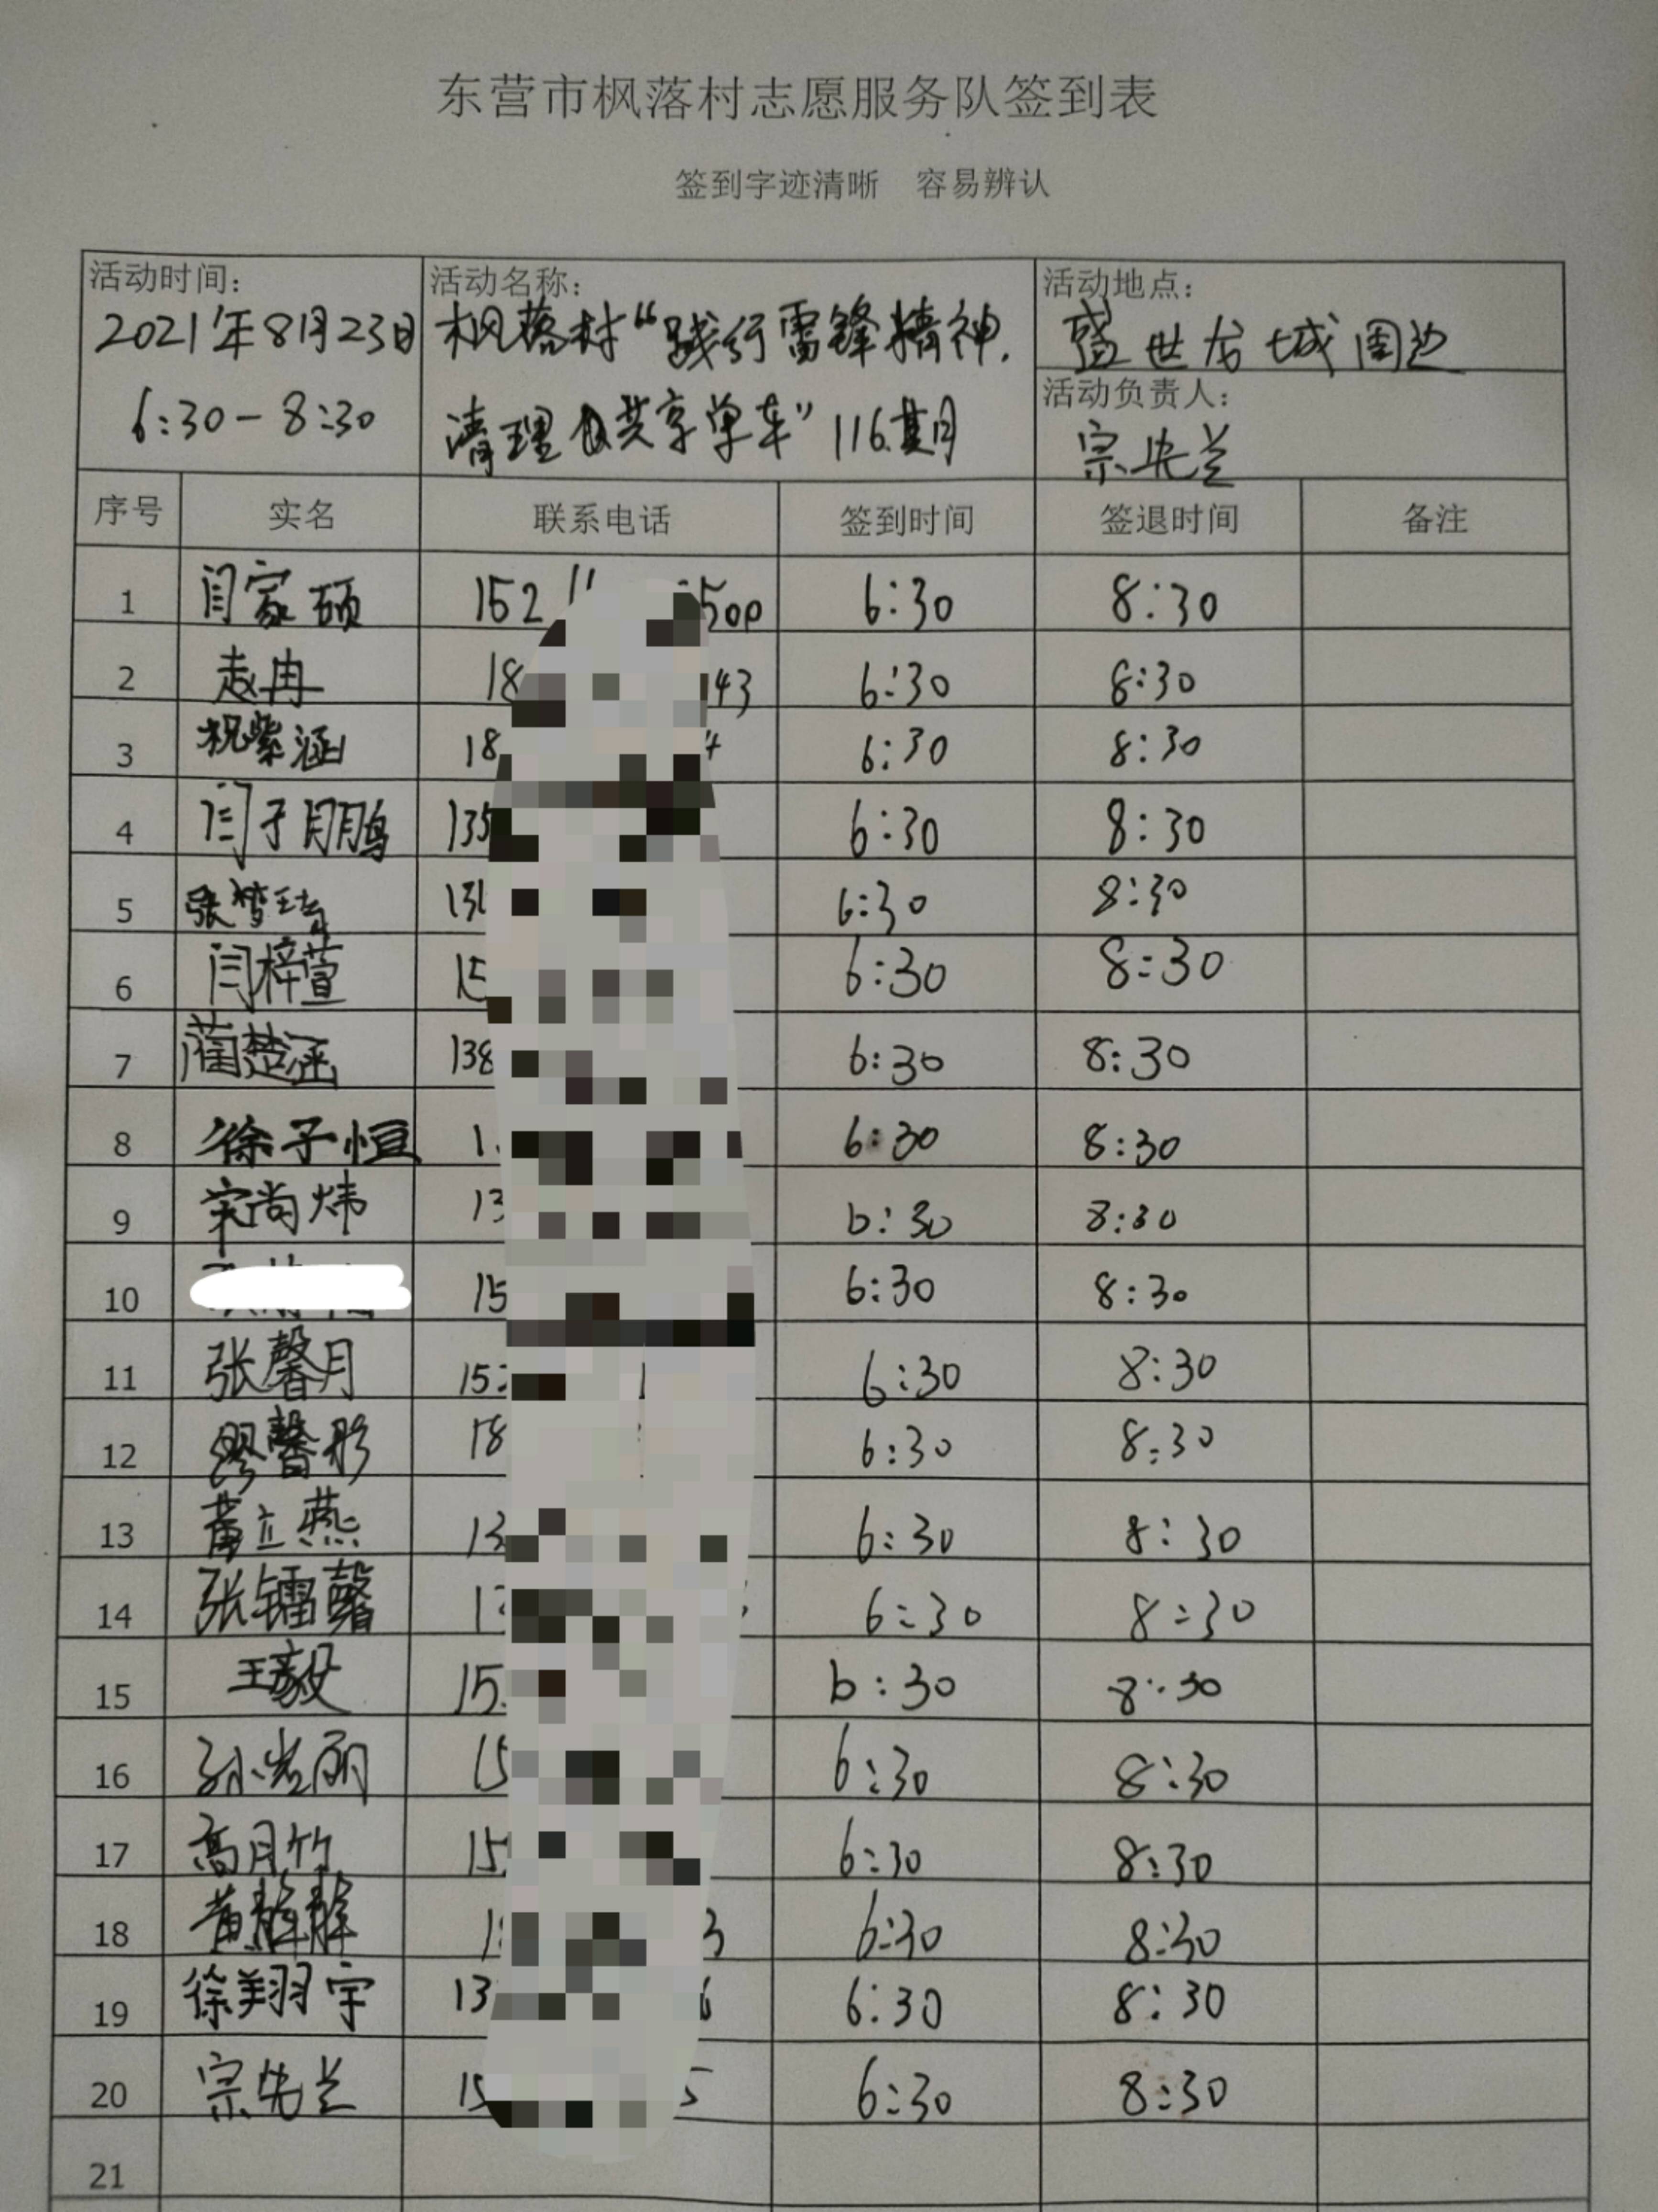 东营市枫落村志愿服务队签到表
签到字迹清晰 容易辨认
活动时间： 活动名称： 活动地点：
2021年8月23日 枫落村“践行雷锋精神， 盛世龙城周边
活动负责人：
6:30-8:30 清理共享单车”116期
宗先兰
序号 实名 联系电话 签到时间 签退时间 备注
1 闫家硕 152 500 6:30 8:30
2 赵冉 18 43 6:30 8:30
3 祝紫涵 18 6:30 8:30
4 闫子鹏 135 6:30 8:30
5 张梦琦 6:30 8:30
6 闫梓萱 15 6:30 8:30
7 蔺楚涵 138 6:30 8:30
8 徐子恒 1 6:30 8:30
9 宋尚炜 13 6:30 8:30
10 15 6:30 8:30
11 张馨月 15 6:30 8:30
12 缪馨彤 18 6:30 8:30
13 立燕 13 6:30 8:30
14 张镭馨 1 6:30 8:30
15 王毅 15 6:30 8:30
16 孙岩丽 15 6:30 8:30
17 高月竹 15 6:30 8:30
18 黄 1 3 6:30 8:30
19 徐翔宇 13 6 6:30 8:30
20 宗先兰 15 5 6:30 8:30
21